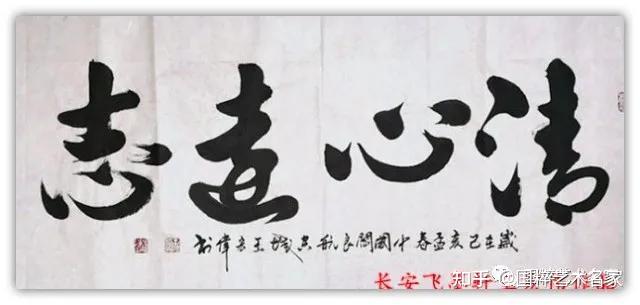 清心遠志
歲在己亥孟春中國閻良航空城王偉書
长安飞
知乎 @国粹艺术名家